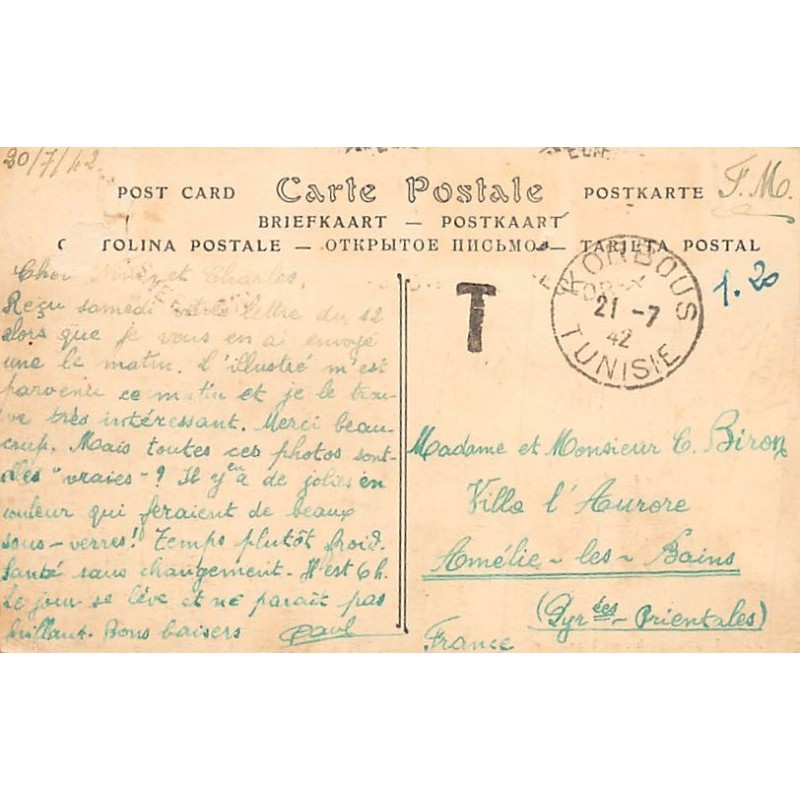 20/7/42
POST CARD Carte Postale POSTKARTE
F.M.
BRIEFKAART — POSTKAART
C TOLINA POSTALE — ОТКРЫТОЕ ПИСЬМО — TARJETA POSTAL
et Charles,
Reçu samedi votre lettre du 12
alors que je vous en ai envoyé
une le matin. L'illustré m'est
parvenu ce matin et je le trou-
ve très intéressant. Merci beau-
coup. Mais toutes ces photos sont-
elles "vraies"? Il y en a de jolies en
couleur qui feraient de beaux
sous-verres! Temps plutôt froid.
Santé sans changement. Il est 6h.
Le jour se lève et ne paraît pas
brillant. Bons baisers Paul
T
KORBOUS
21 -7
42
TUNISIE
1.20
Madame et Monsieur C. Biron
Villa l'Aurore
Amélie-les-Bains
(Pyrées-Orientales)
France